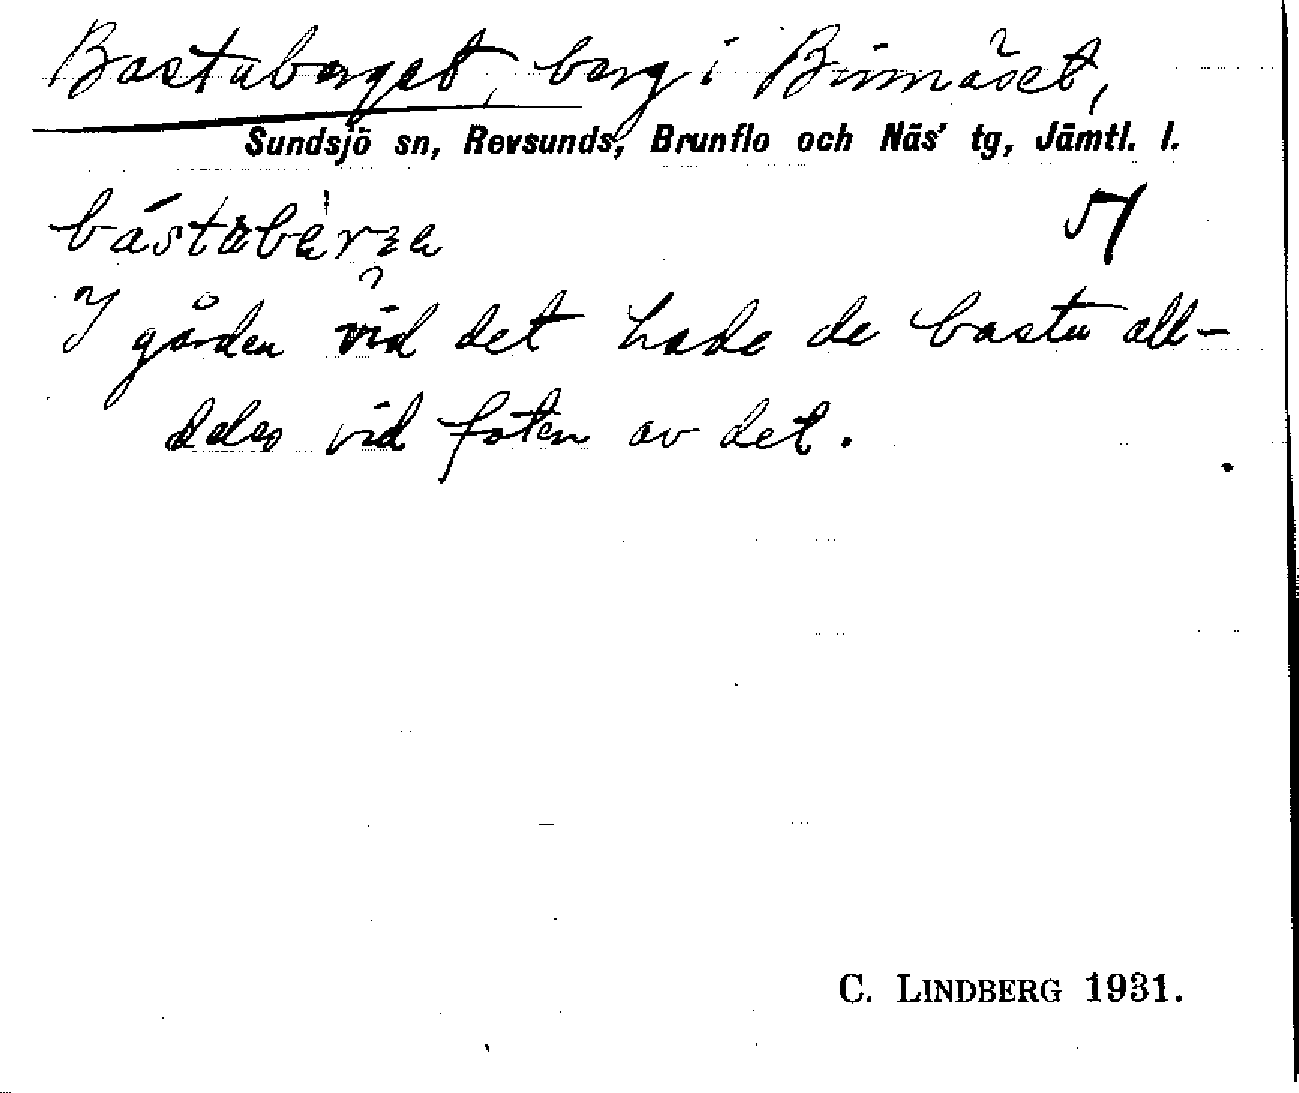 Bastaberget, berg i Binnäset,
Sundsjö sn, Revsunds, Brunflo och Näs' tg, Jämtl. l.
51
I gården vid det hade de bastu all-
deles vid foten av det.
C. LINDBERG 1931.